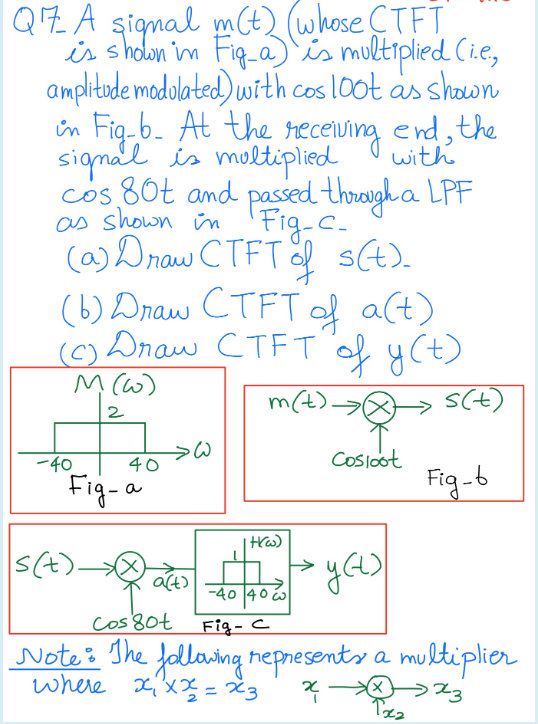 Q7. A signal m(t) (whose CTFT
is shown in Fig-a) is multiplied (i.e.,
amplitude modulated) with cos 100t as shown
in Fig-b. At the receiving end, the
signal is multiplied with
cos 80t and passed through a LPF
as shown in Fig-c.
(a) Draw CTFT of s(t).
(b) Draw CTFT of a(t)
(c) Draw CTFT of y(t)
M(ω)
2
-40 40 ω
Fig-a
m(t) → × → s(t)
Cos100t
Fig-b
s(t) → × → a(t)
cos80t
H(ω)
1
-40 40 ω
→ y(t)
Fig-c
Note: The following represents a multiplier
where x₁ × x₂ = x₃
x₁ → × → x₃
x₂